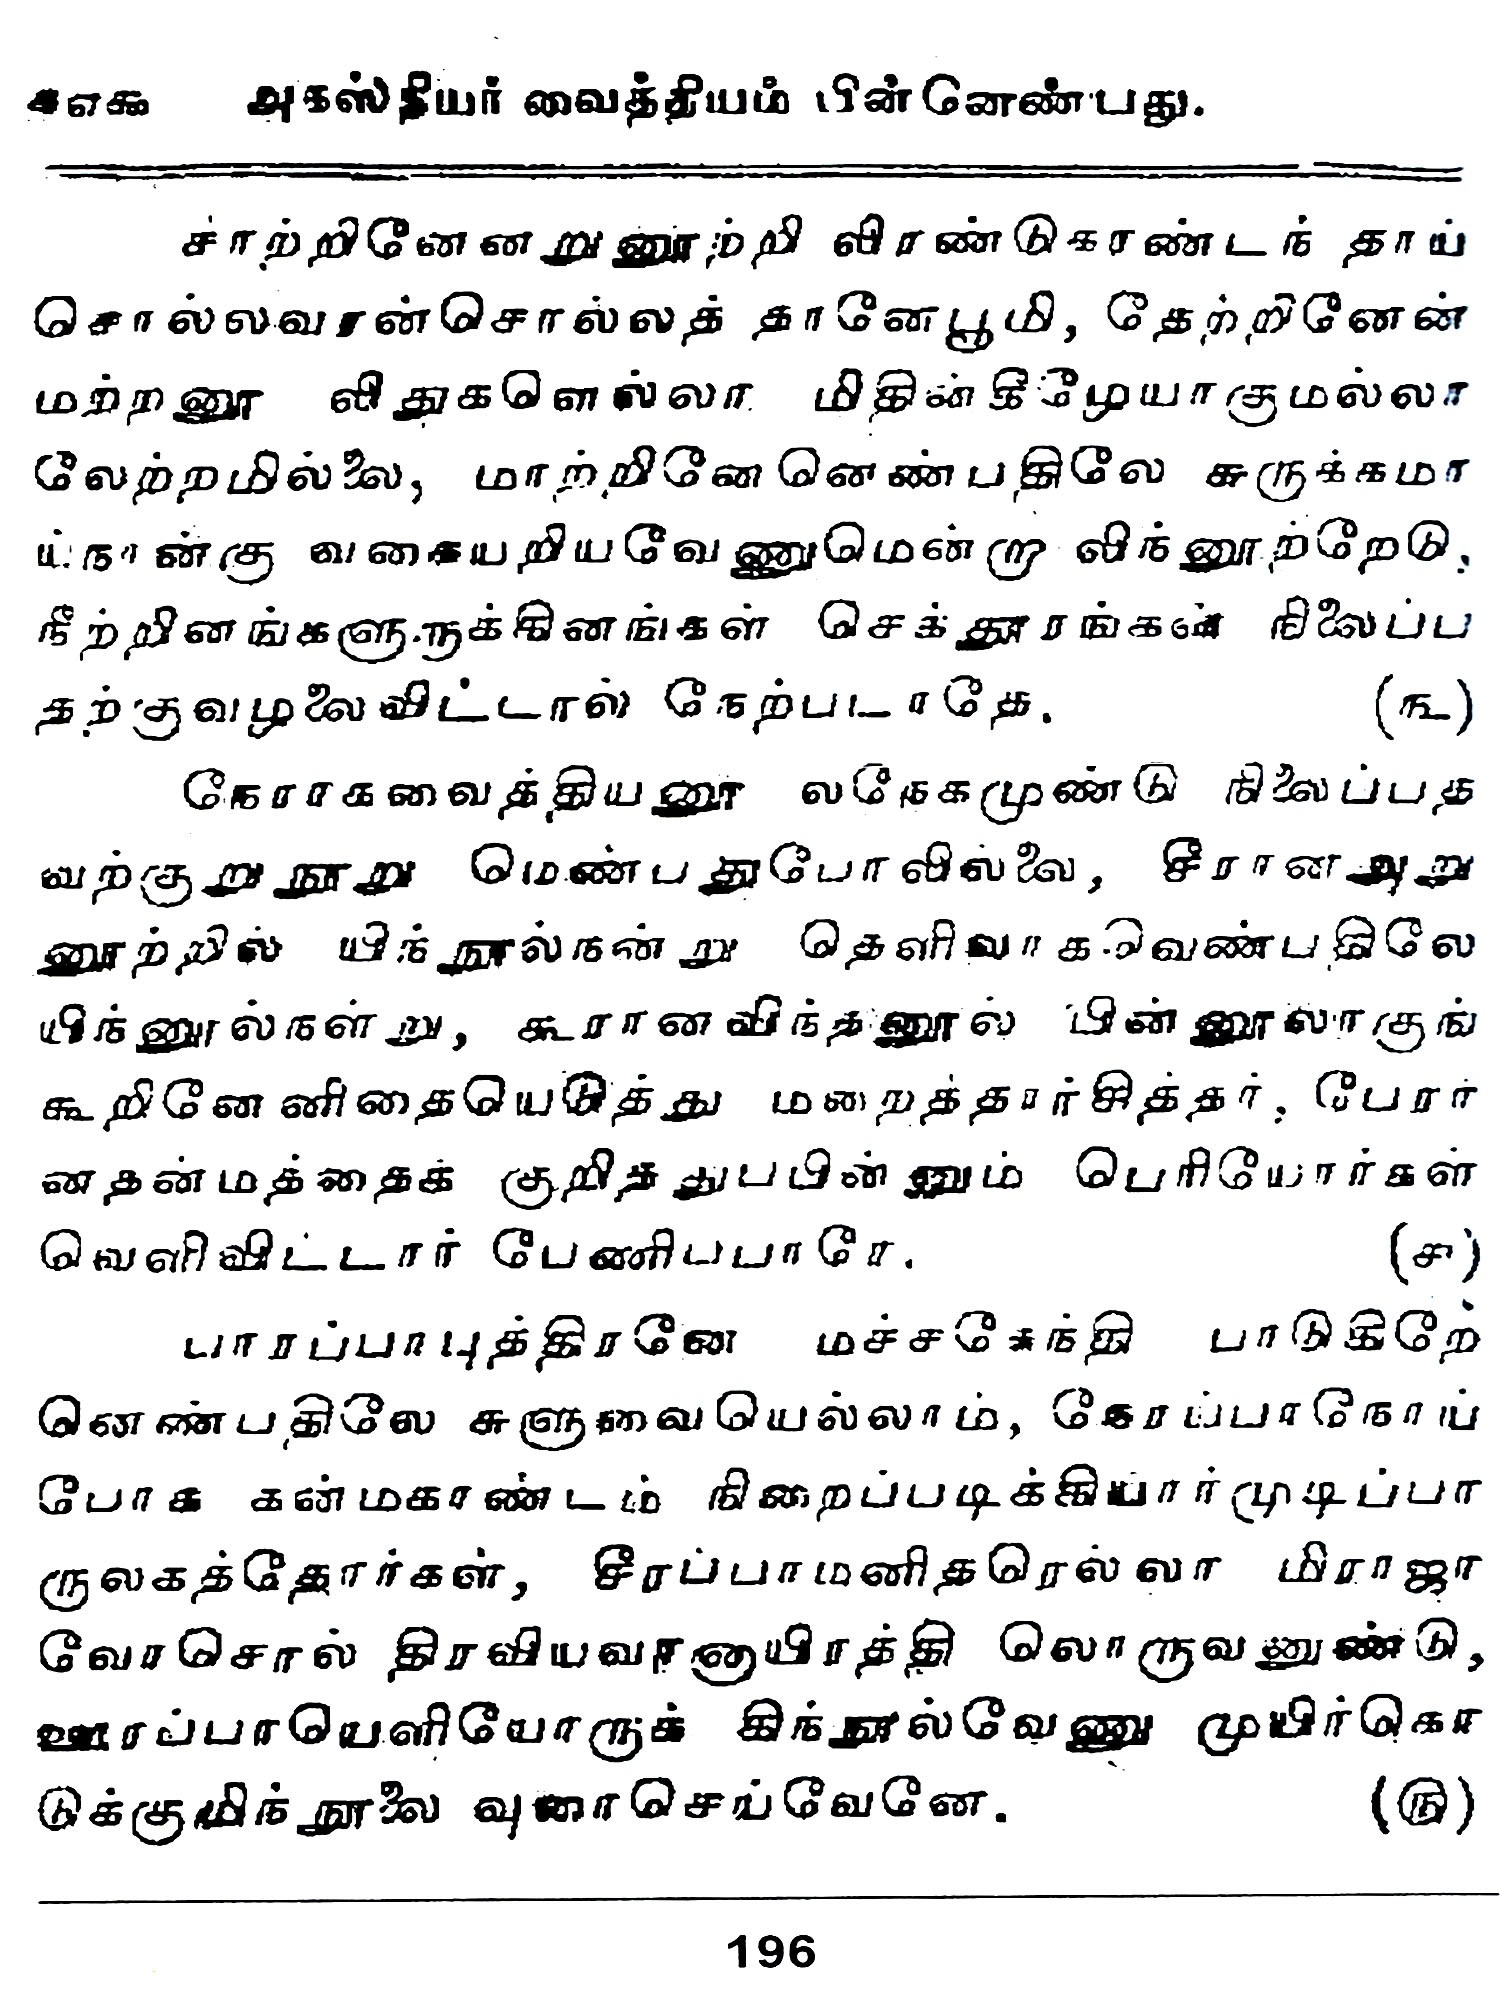 ௧௭௬ அகஸ்தியர் வைத்தியம் பின்னெண்பது.
சாற்றினேனறுனூற்றி லிரண்டுகாண்டந் தாய்
சொல்லவரன்சொல்லத் தானேபூமி, தேற்றினேன்
மற்றனூ லிதுகளெல்லா மிதின்கீழேயாகுமல்லா
லேற்றமில்லை, மாற்றினேனெண்பதிலே சுருக்கமா
ய்நான்கு வகையறியவேணுமென்று லிந்னூற்றேடு,
நீற்றினங்களுநக்கினங்கள் செக்தூரங்கள் நிலைப்ப
தற்குவழலைவிட்டால் நேற்படாதே. (௩)
நேராகவைத்தியனூ லநேகமுண்டு நிலைப்பத
வற்குறுநூறு மெண்பதுபோலில்லை, சீரானஅறு
னூற்றில் யிந்நூல்நன்று தெளிவாகவெண்பதிலே
யிந்னூல்நன்று, கூரானவிந்தனூல் பின்னூலாகுங்
கூறினேனிதையெடுத்து மறைத்தார்சித்தர், பேரா
னதன்மத்தைக் குறித்துபபின்னும் பெரியோர்கள்
வெளிவிட்டார் பேணிப்பாரே. (௪)
பாரப்பாபுத்திரனே மச்சகேந்தி பாடுகிறே
னெண்பதிலே சுளுவையெல்லாம், கேரப்பாநோய்
போக கன்மகாண்டம் நிறைப்படிக்கியார்முடிப்பா
ருலகத்தோர்கள், சீரப்பாமனிதரெல்லா மிராஜா
வோசொல் திரவியவானாயிரத்தி லொருவனுண்டு,
ஊரப்பாயெளியோருக் கிந்நூல்வேணு முயிர்கொ
டுக்குமிந்நூலை வுரைசெய்வேனே. (௫)
196